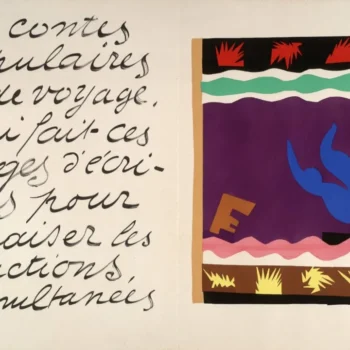 contes
pulaires
de voyage.
i fait ces
ges d'écri-
s pour
aiser les
ctions,
multanées